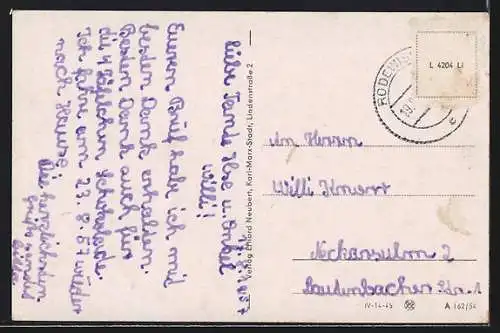 liebe Tante Ilse u. Onkel
Willi!
Euern Brief hab ich mit
besten Dank erhalten.
Besten Dank auch für
die 4 Schokolade.
Ich fahre am 23.8.57 wieder
nach Hause.
Die herzlichsten
Grüße sendet
Verlag Erhard Neubert, Karl-Marx-Stadt, Lindenstraße 2
RODEWISCH
L 4204 Li
An Herrn
Willi
Neckarsulm 2
Lautenbacher Str. 1
IV-14-45
A 162/54